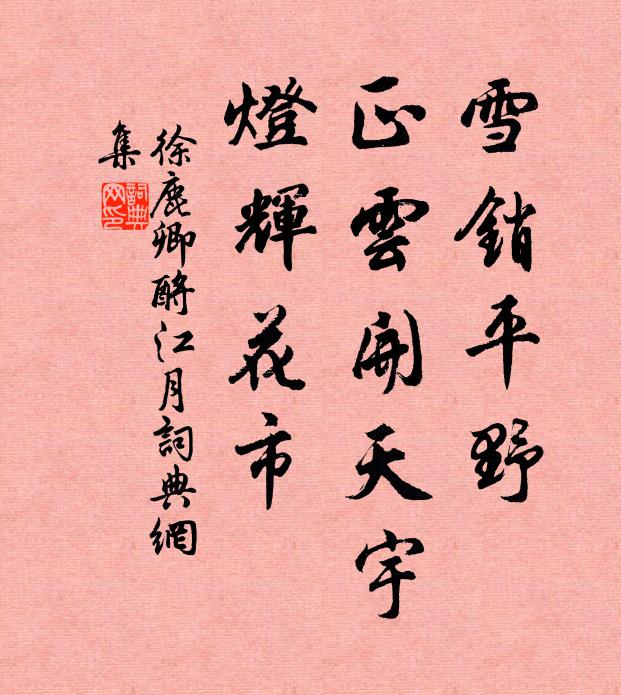 雪銷平野
正雲開天宇
燈輝花市
徐鹿卿酹江月詞典網
集
詞典網印